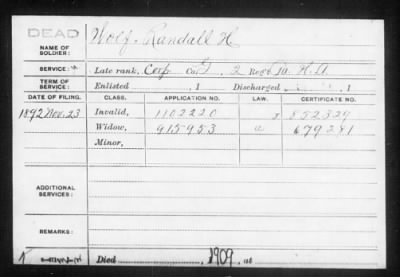 DEAD
NAME OF SOLDIER: Wolf, Randall H
SERVICE: Late rank, Corp Co. G, 2 Reg't Pa. H.A.
TERM OF SERVICE: Enlisted , 1 Discharged , 1
DATE OF FILING. CLASS. APPLICATION NO. LAW. CERTIFICATE NO.
1892 Nov. 23 Invalid, 1102220 852329
Widow, 915953 a 679281
Minor,
ADDITIONAL SERVICES:
REMARKS:
Died , 1909, at